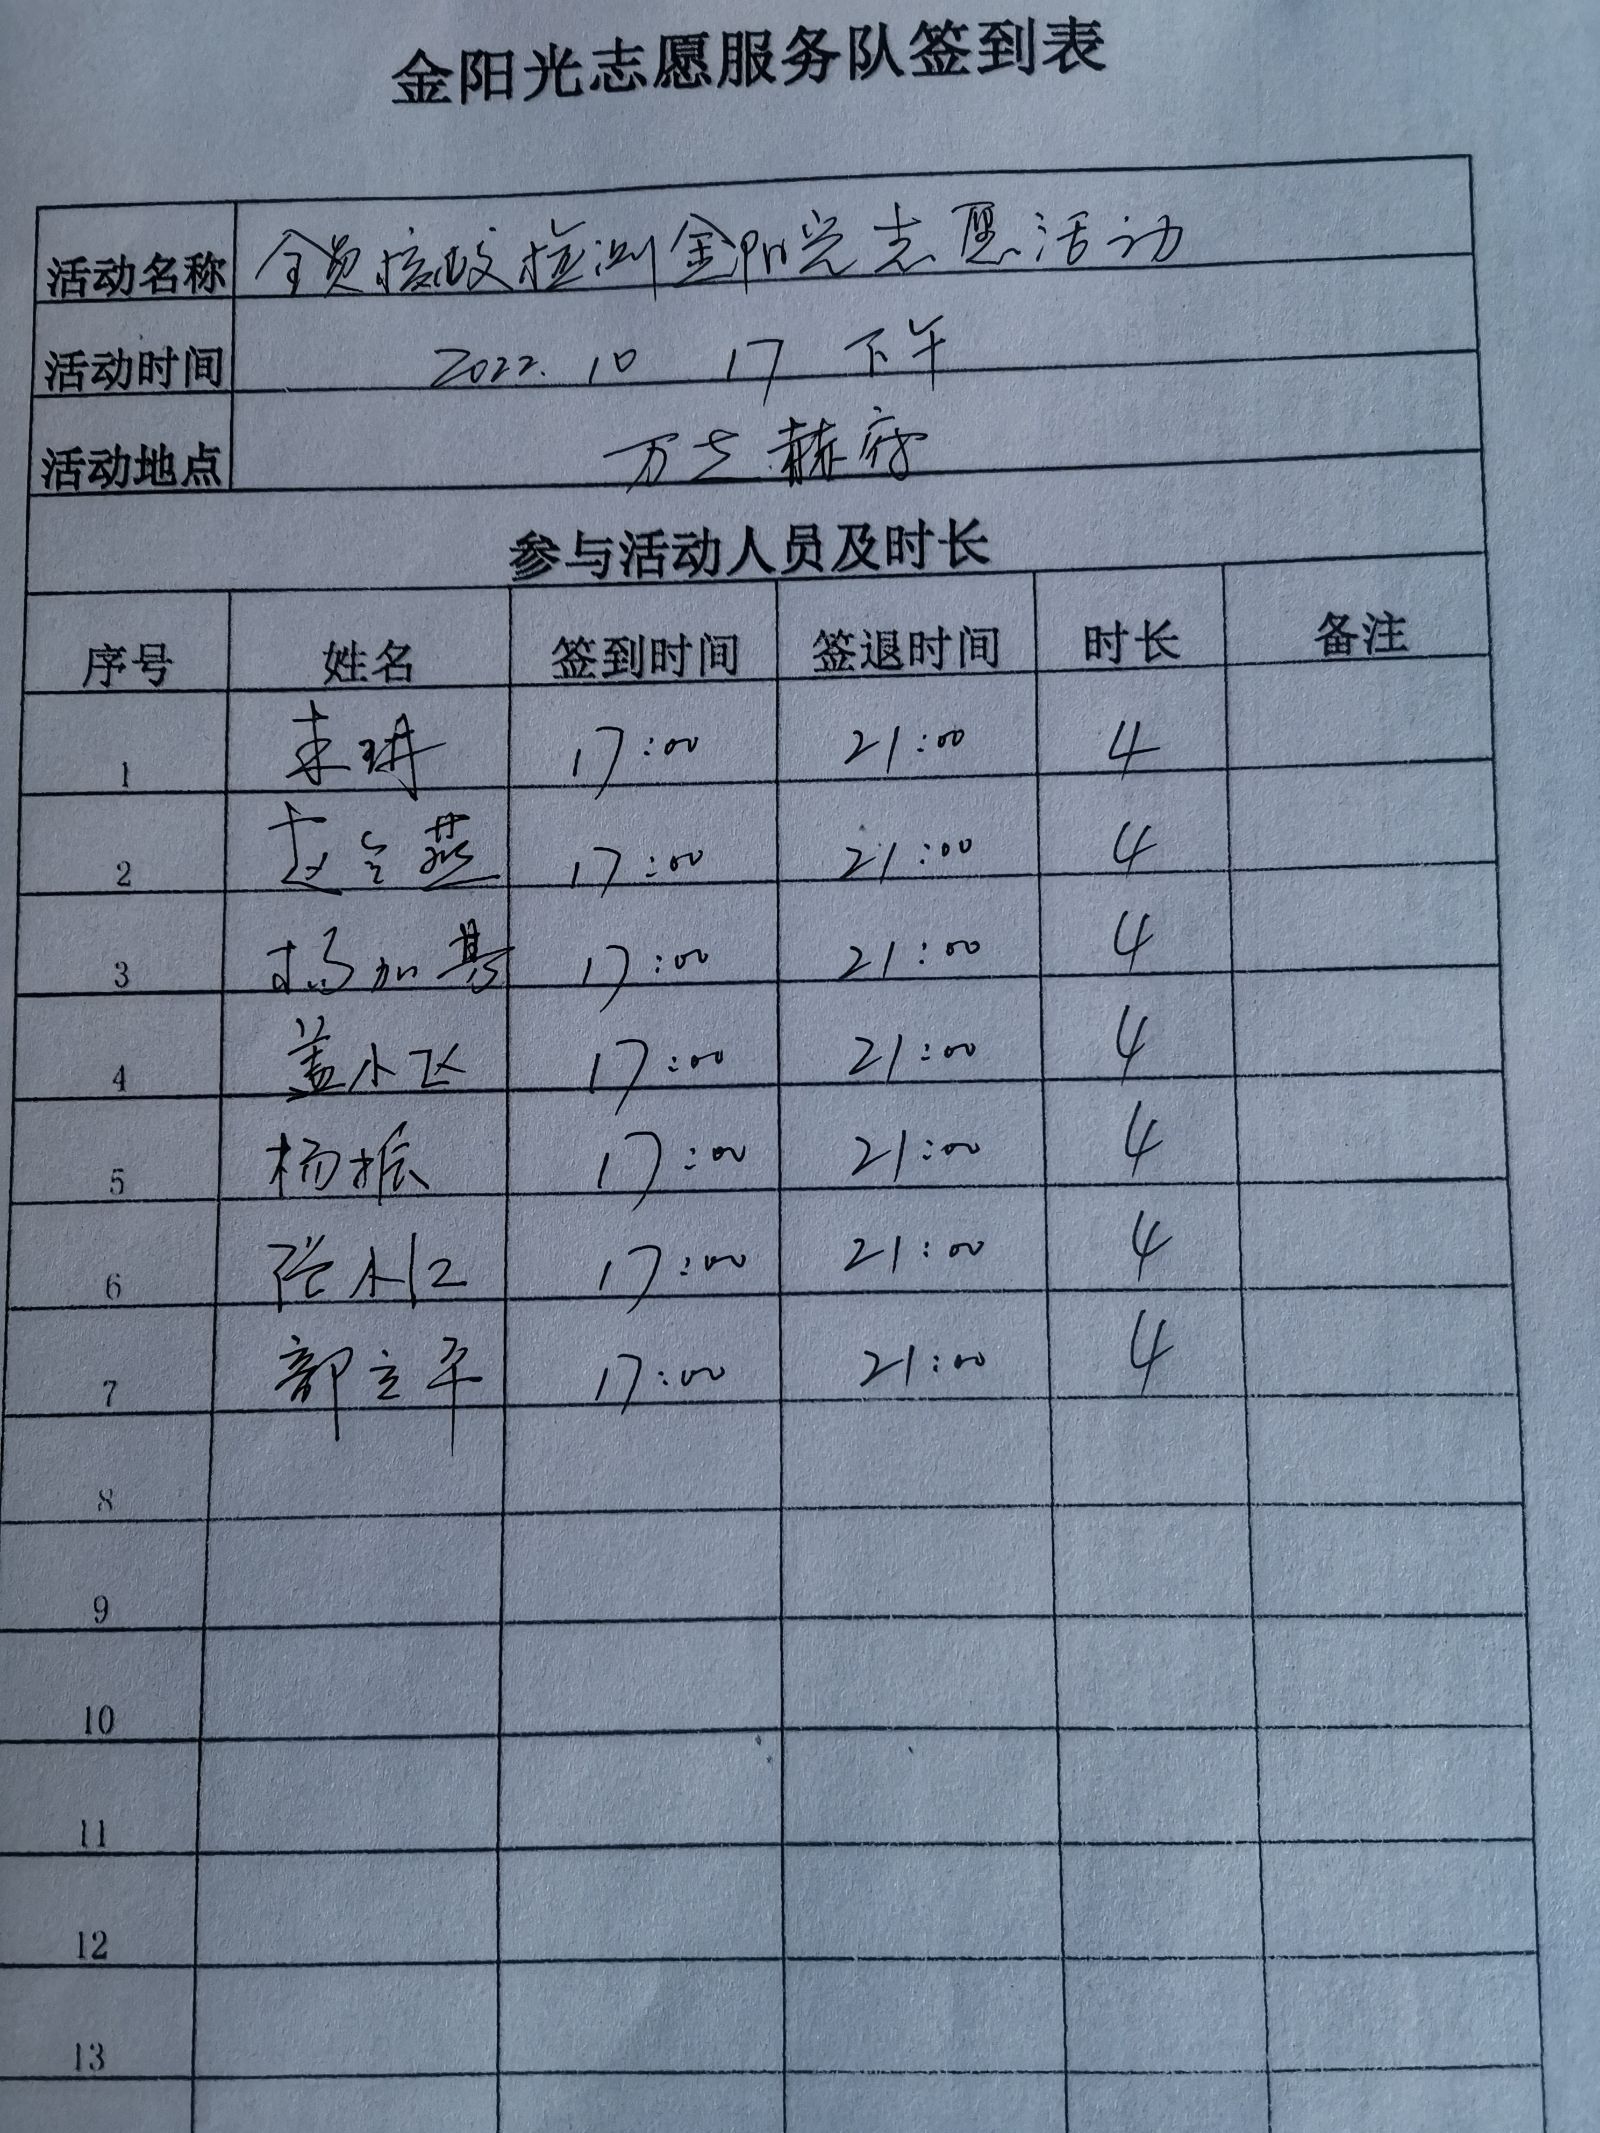 金阳光志愿服务队签到表
活动名称 全员核酸检测金阳光志愿活动
活动时间 2022.10 17 下午
活动地点 万之赫府
参与活动人员及时长
序号 姓名 签到时间 签退时间 时长 备注
1 17:00 21:00 4
2 赵令燕 17:00 21:00 4
3 杨加基 17:00 21:00 4
4 盖小飞 17:00 21:00 4
5 杨振 17:00 21:00 4
6 张小红 17:00 21:00 4
7 郭立平 17:00 21:00 4
8
9
10
11
12
13